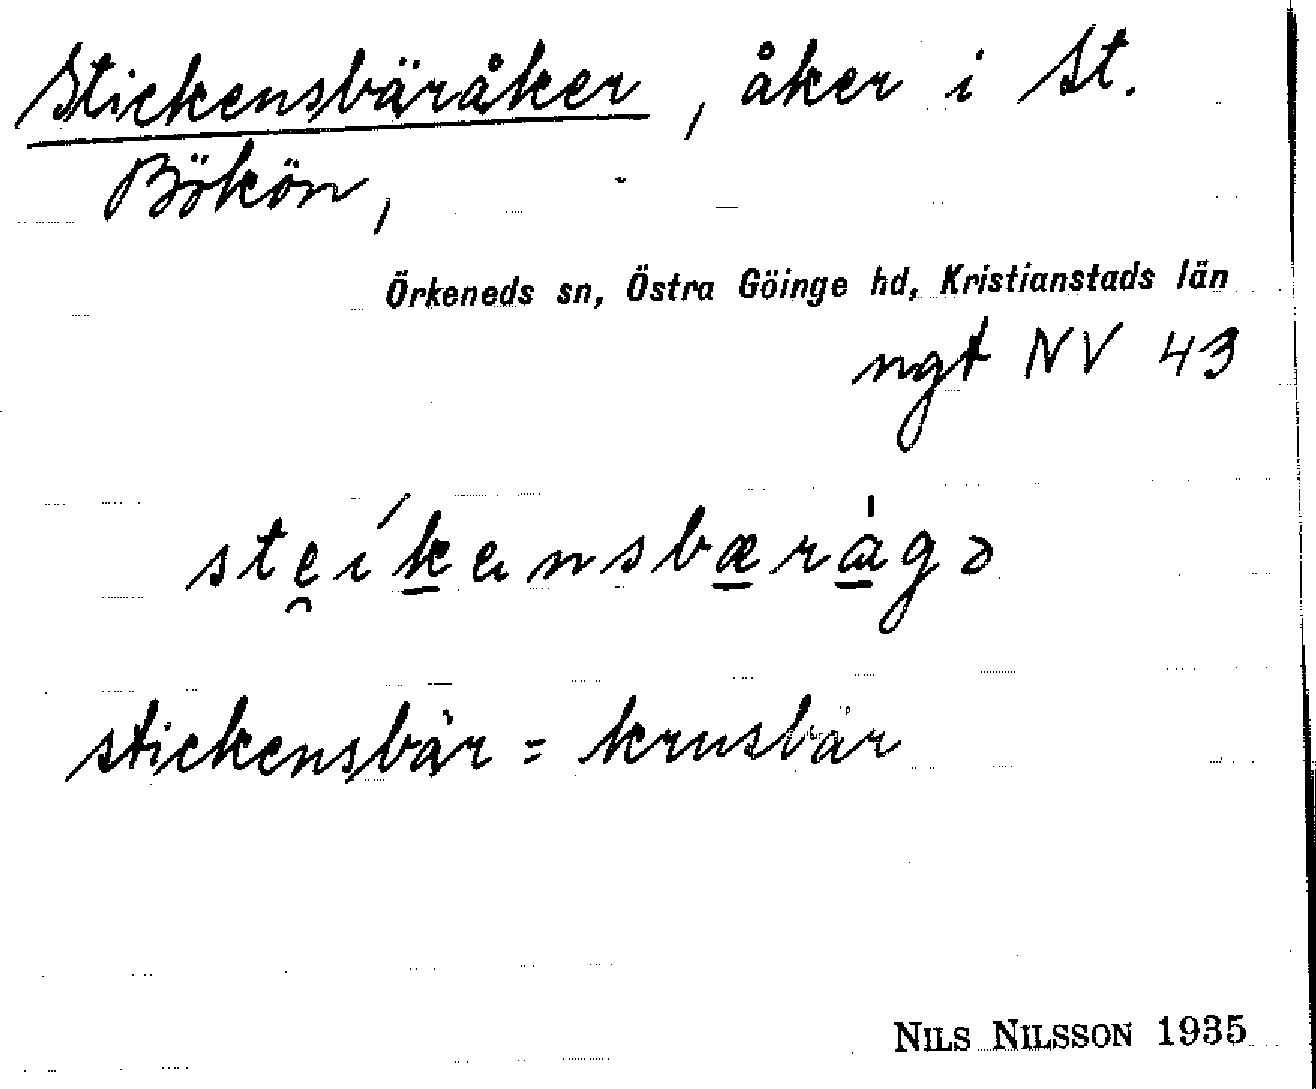 Stickensbäråker, åker i St.
Bökön,
Örkeneds sn, Östra Göinge hd, Kristianstads län
ngt NV 43
ste̯íḵensbæ̱rà̱gə
stickensbär = krusbär
NILS NILSSON 1935